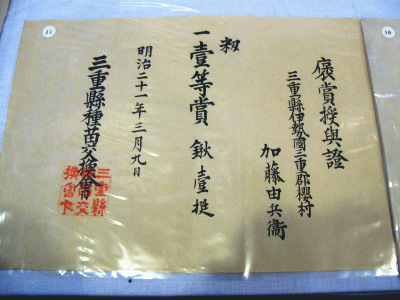 褒賞授與證
三重縣伊勢國三重郡櫻村
加藤由兵衞
籾
一壹等賞 鍬壹挺
明治二十一年三月九日
三重縣種苗交換會
11
10